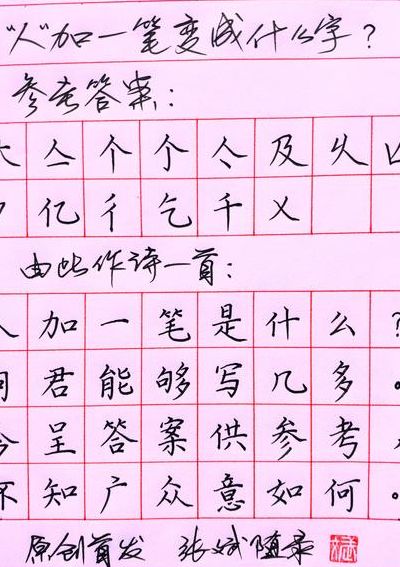 "人"加一笔变成什么字？
参考答案：
大 亼 个 个 亽 及 乆
亿 彳 乞 千 㐅
由此作诗一首：
人加一笔是什么？
问君能够写几多。
今呈答案供参考，
不知广众意如何。
原创首发 张斌随录